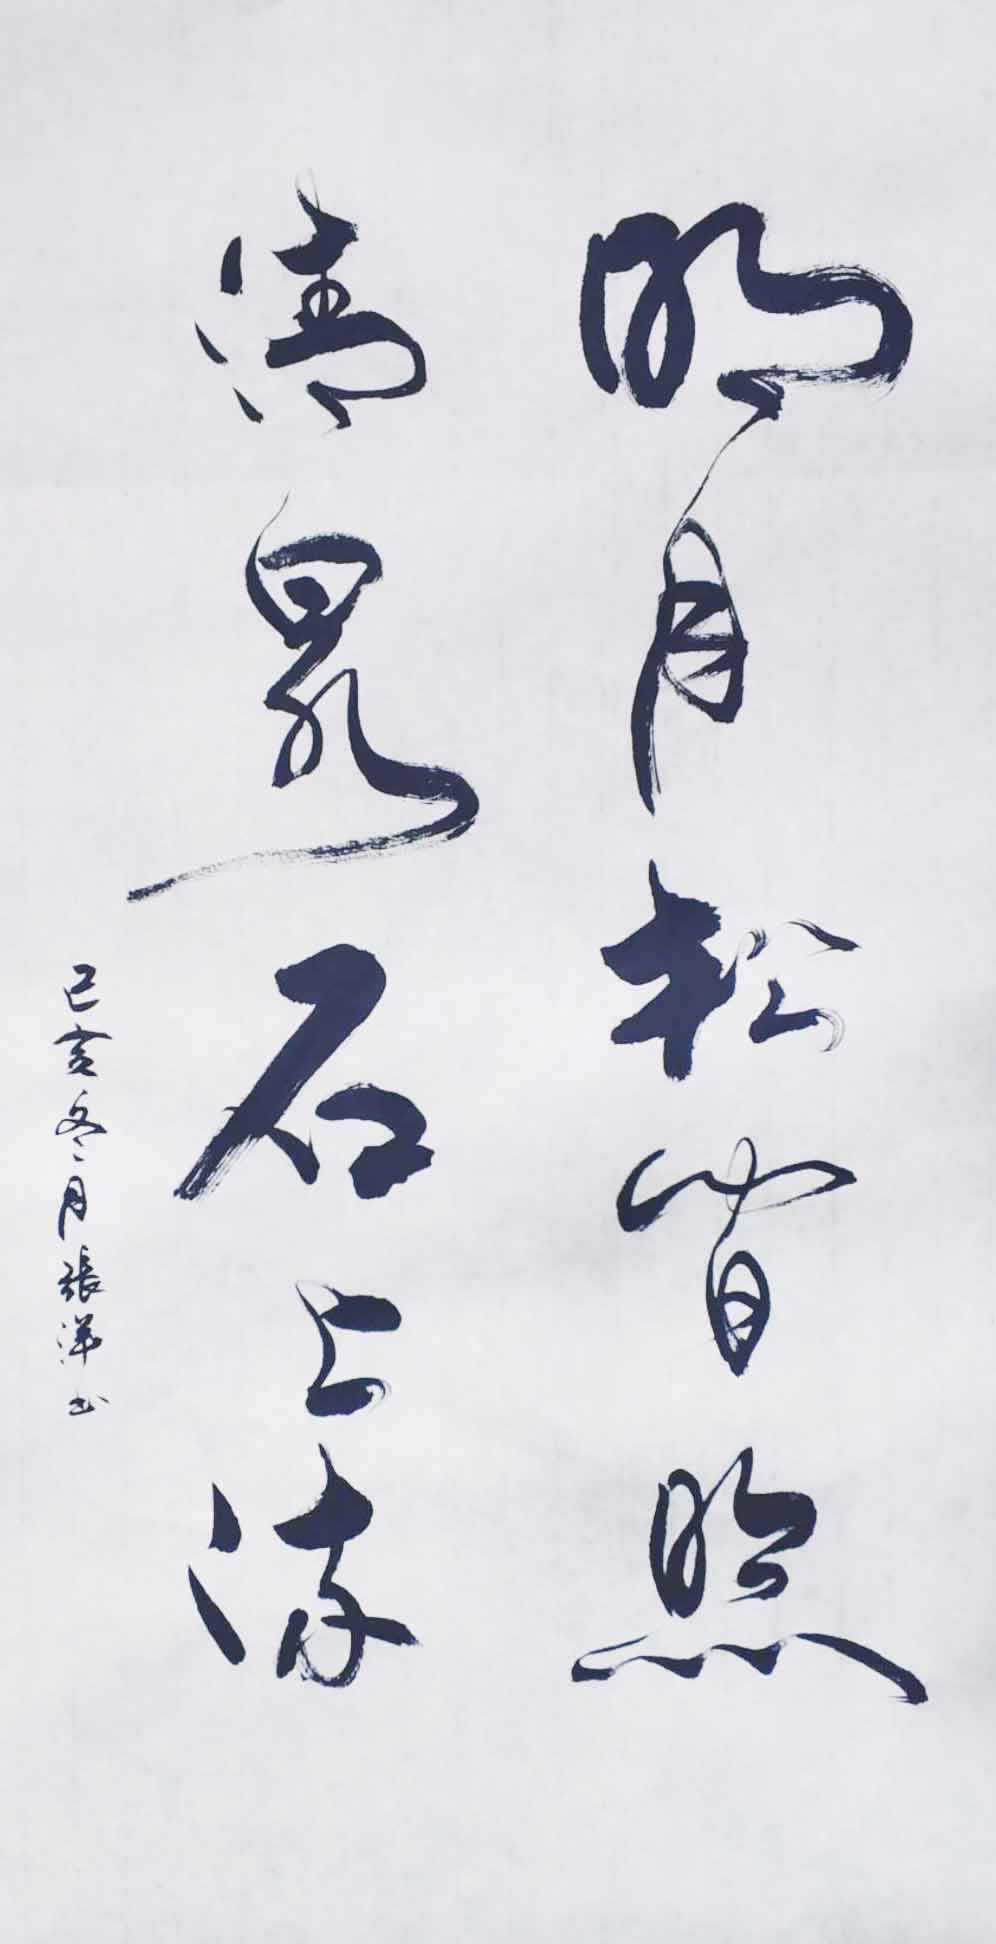 明月松間照
清泉石上流
己亥冬月張洋书